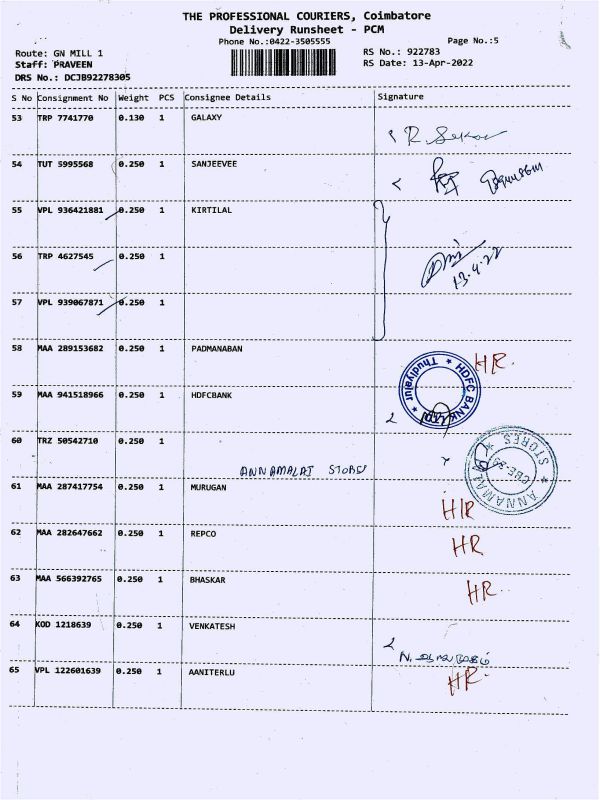 THE PROFESSIONAL COURIERS, Coimbatore
Delivery Runsheet - PCM
Phone No.:0422-3505555 Page No.:5
Route: GN MILL 1 RS No.: 922783
Staff: PRAVEEN RS Date: 13-Apr-2022
DRS No.: DCJB92278305
S No Consignment No Weight PCS Consignee Details Signature
53 TRP 7741770 0.130 1 GALAXY
R. Sekar
54 TUT 5995568 0.250 1 SANJEEVEE
55 VPL 936421881 0.250 1 KIRTILAL
56 TRP 4627545 0.250 1
13.4.22
57 VPL 939067871 0.250 1
58 MAA 289153682 0.250 1 PADMANABAN HR.
59 MAA 941518966 0.250 1 HDFCBANK
HDFC BANK * Thudiyalur *
60 TRZ 50542710 0.250 1
ANNAMALAI STORES
61 MAA 287417754 0.250 1 MURUGAN
HR
62 MAA 282647662 0.250 1 REPCO
HR
63 MAA 566392765 0.250 1 BHASKAR
HR.
64 KOD 1218639 0.250 1 VENKATESH
65 VPL 122601639 0.250 1 AANITERLU
HR.